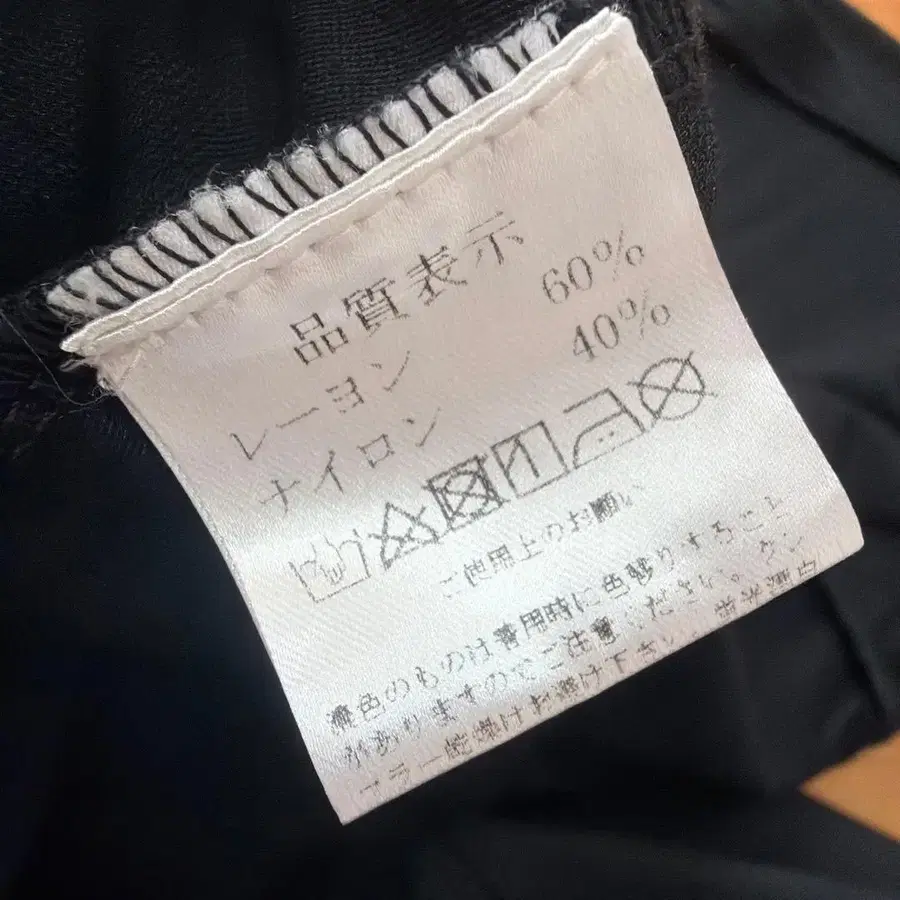 品質表示
レーヨン 60%
ナイロン 40%
ご使用上のお願い
濃色のものは着用時に色移りすること
がありますのでご注意ください。タン
ブラー乾燥はお避け下さい。蛍光漂白